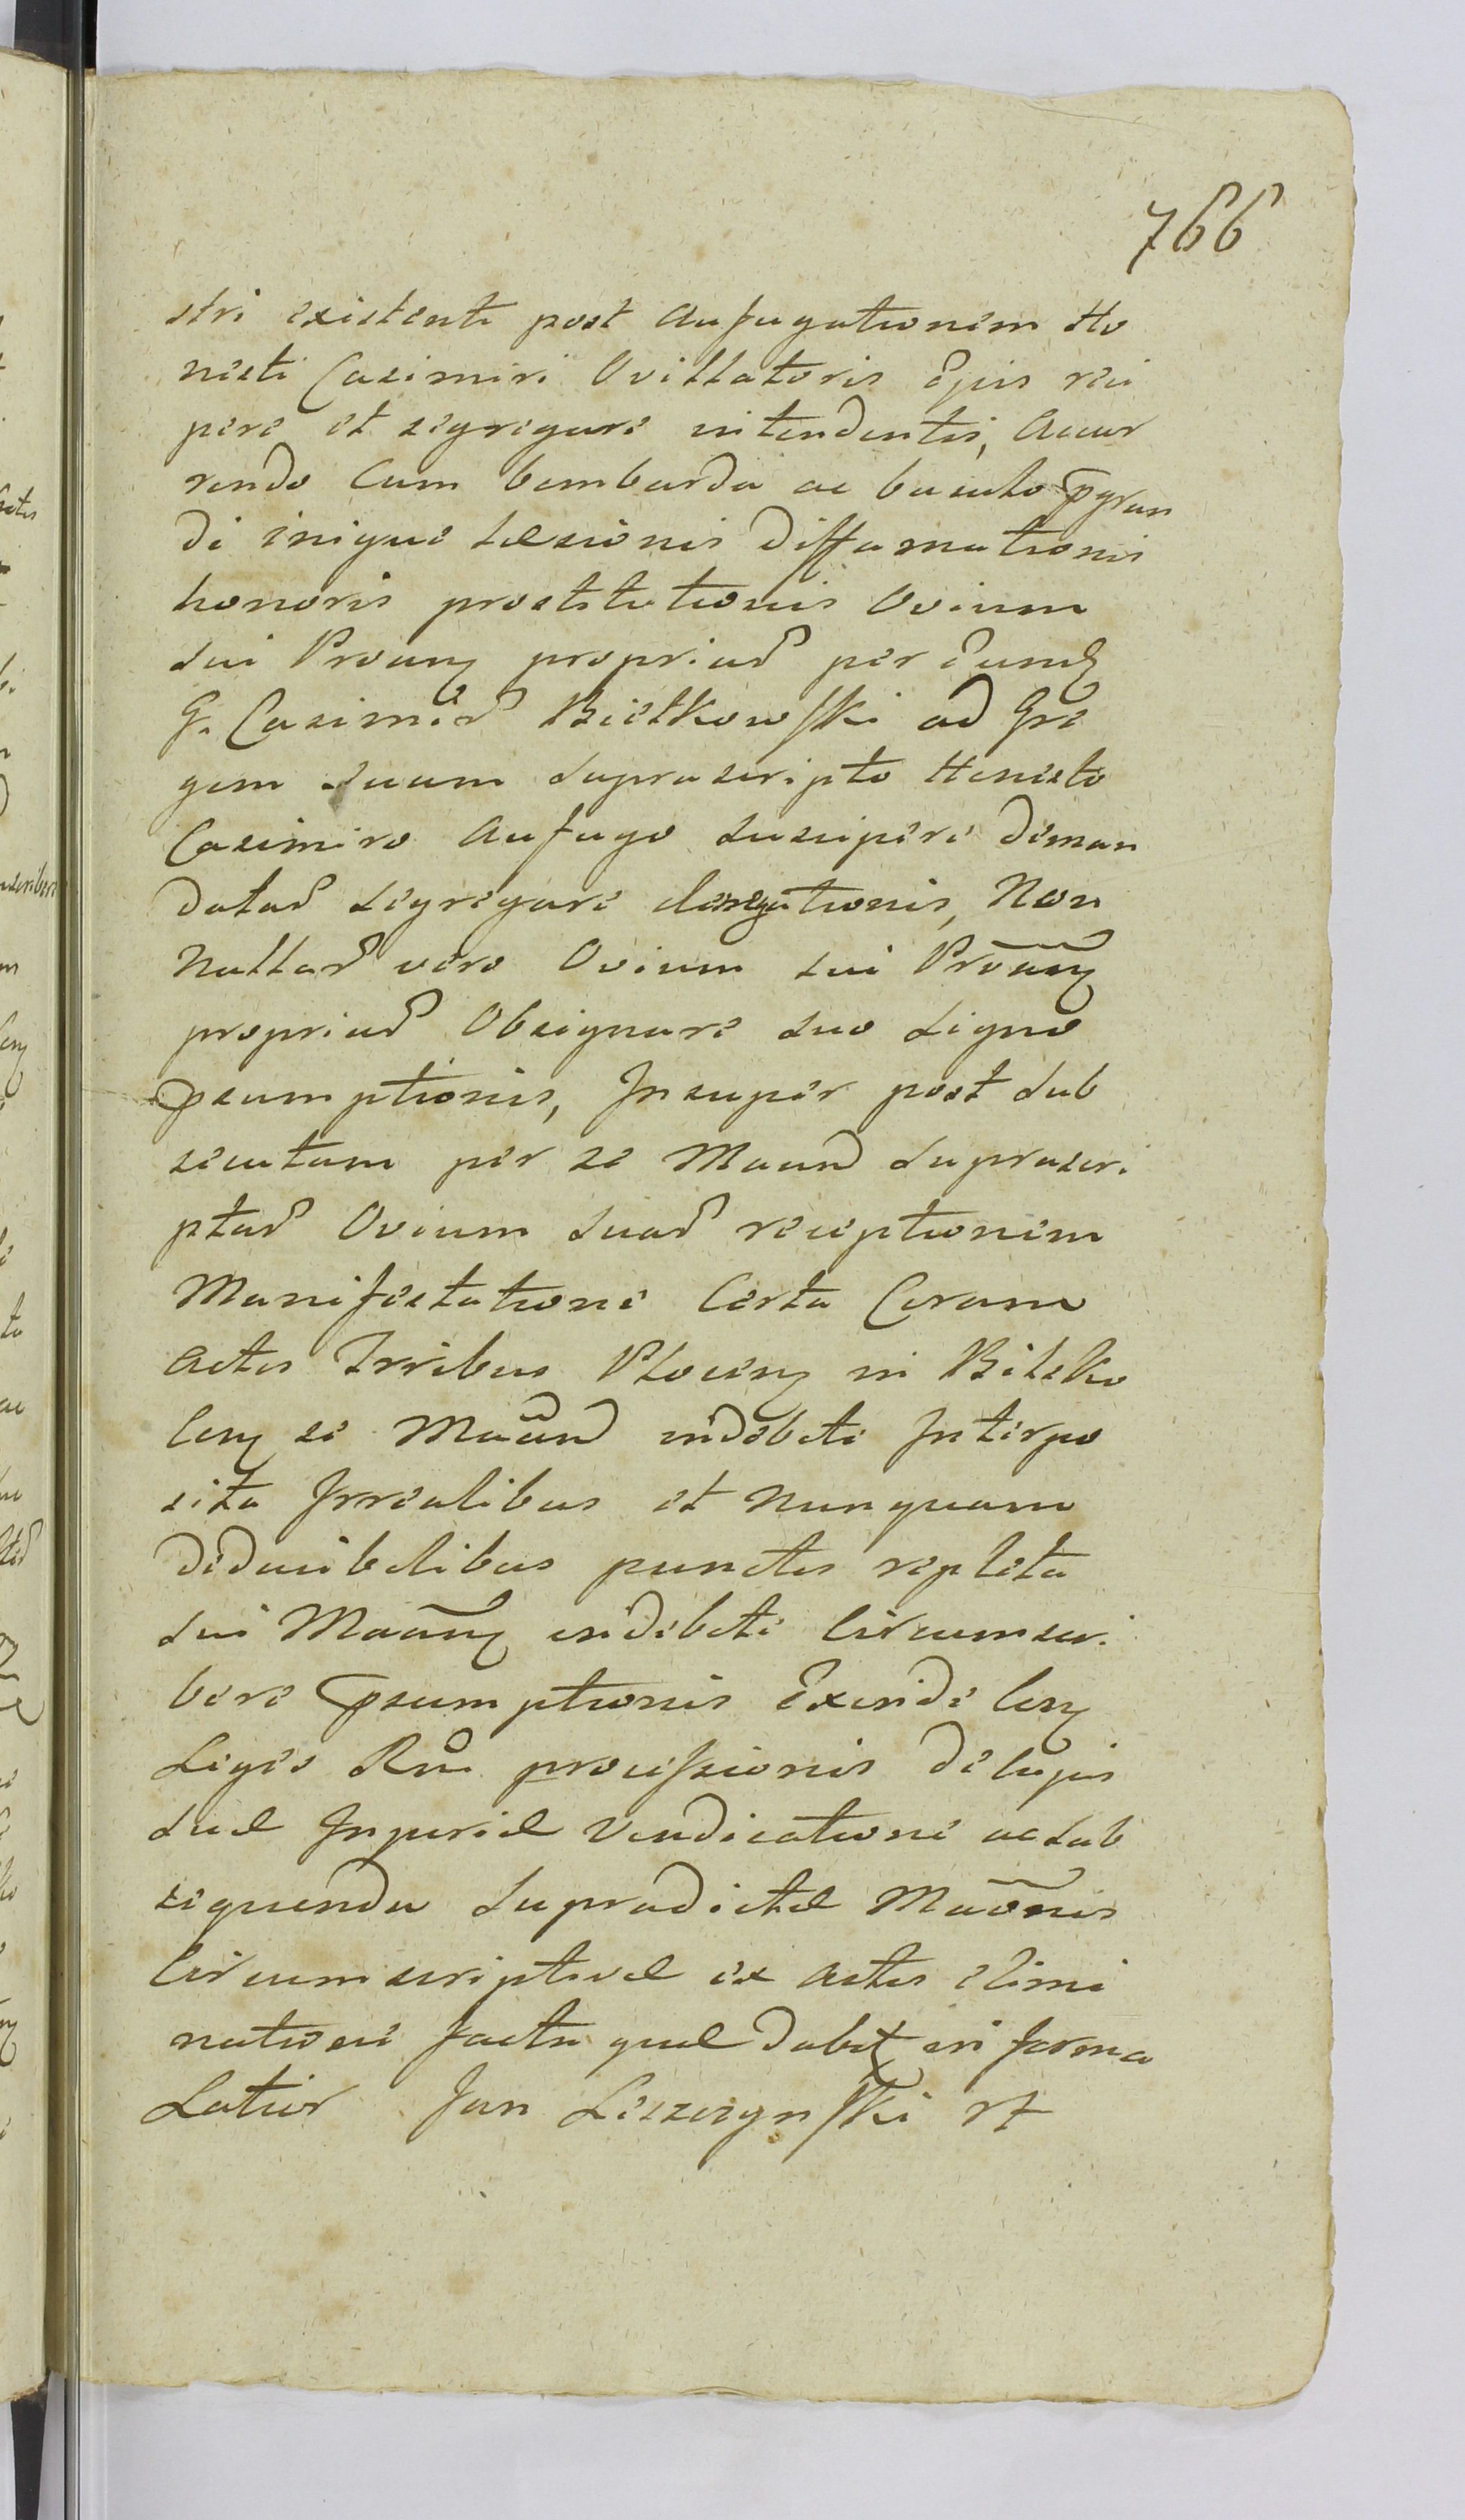 766
stri existenti post aufugationem Ho
nesti Casimiri Ovillatoris Ejus reci
pere et segregare intendentis, accur
rendo Cum bombarda ac baculo pgran
di inique læsionis diffamationis
honoris prostitutionis Ovium
sui Proang propriar per Eund
G. Casimir Bielkowski ad Gre
gem suum suprascripto Honesto
Casimiro Aufugo suscipere deman
datar segregare denegationis, Non
nullar vero Ovium sui Proang
propriar Obsignare suo signo
psumptionis, Insuper post sub
secutam per se Maand suprascri
ptar Ovium suar receptionem
Manifestatione Certa Coram
Actis Trribus Plocens in Bilsko
cong se Maand indebite Interpo
sita Irrealibus et nunquam
deducibilibus punctis repleta
sui Maang indebite Circumscri
bere psumptionis Exinde cong
Leges Rni processionis de cujus
suæ Injuriæ Vindicatione ac sub
sequenda supradictæ Maonis
Circumscriptivæ ex Actis elimi
natione facta quæ dabit in forma
Latior Jan Leszczynski